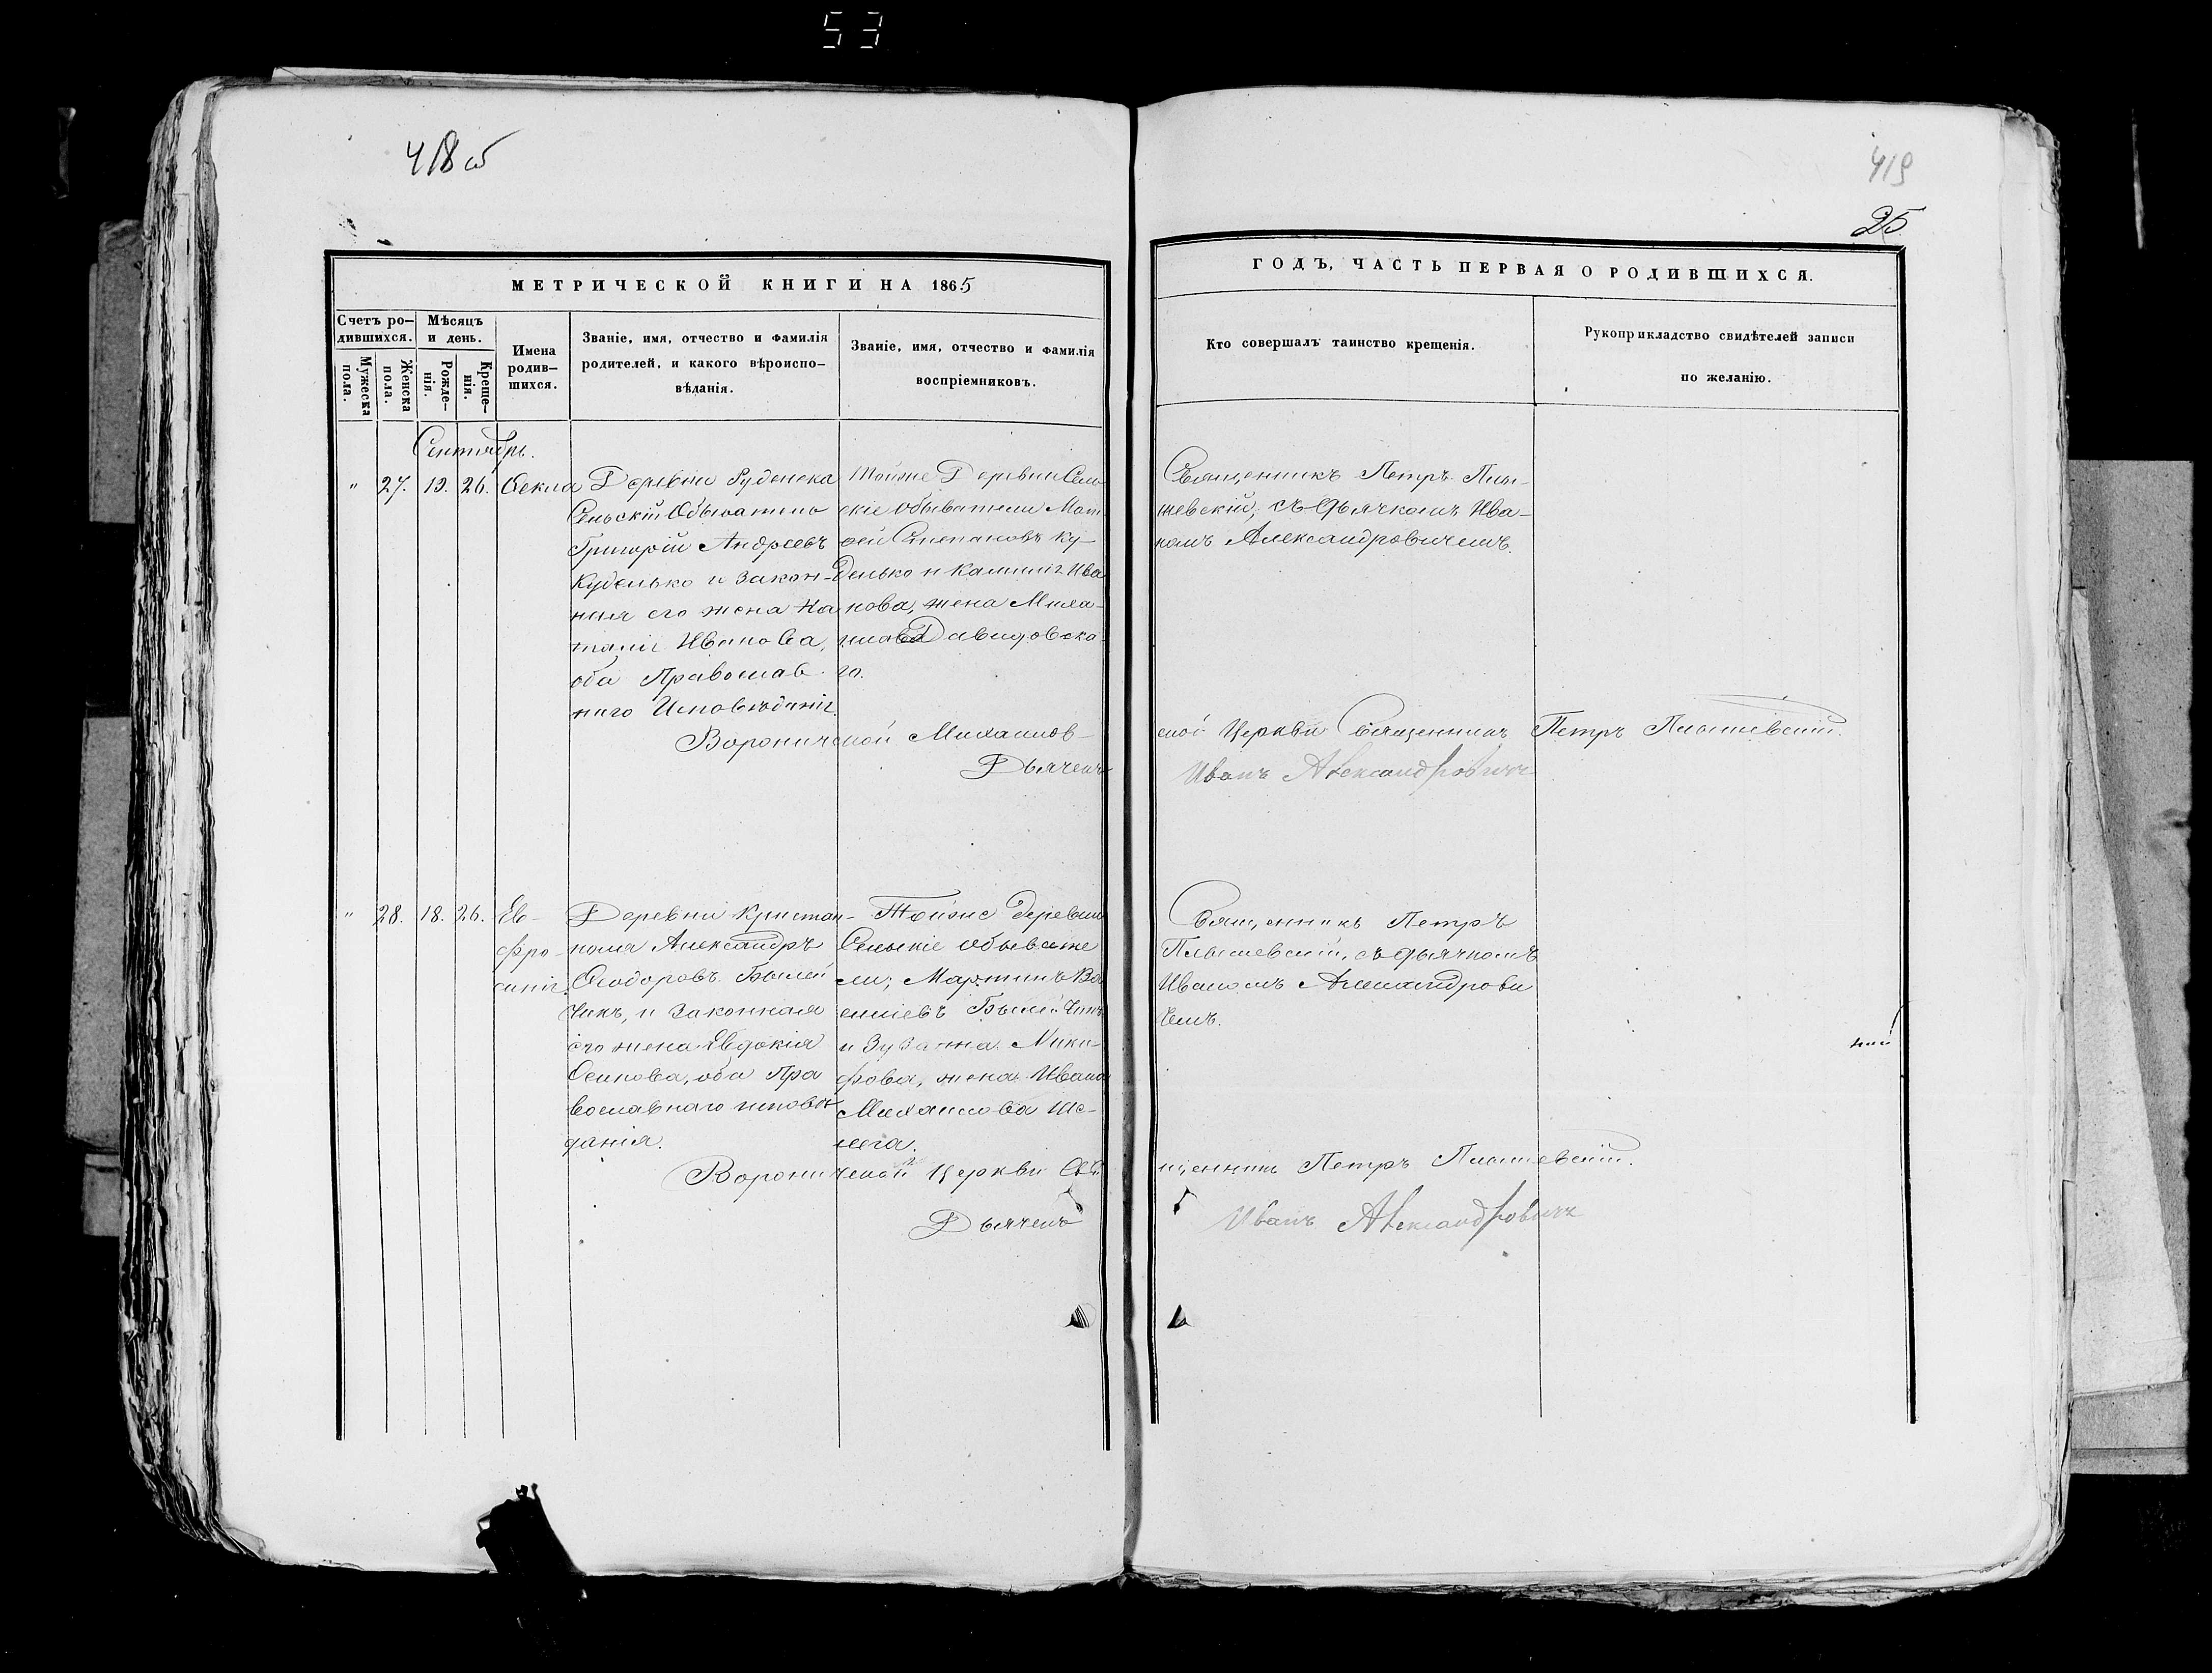 53
418 об
419
25
МЕТРИЧЕСКОЙ КНИГИ НА 1865
ГОДЪ, ЧАСТЬ ПЕРВАЯ О РОДИВШИХСЯ.
Счетъ ро-
дившихся.
Мужеска
пола.
Женска
пола.
Мѣсяцъ
и день.
Рожде-
нія.
Креще-
нія.
Имена
родив-
шихся.
Званіе, имя, отчество и фамилія
родителей, и какого вѣроиспо-
вѣданія.
Званіе, имя, отчество и фамилія
воспріемниковъ.
Кто совершалъ таинство крещенія.
Рукоприкладство свидѣтелей записи
по желанію.
Сентябрь.
" 27. 19. 26. Ѳекла
Деревни Руденска
Сельскій Обыватель
Григорій Андреевъ
Куделько и закон-
ная его жена На
талія Иванова,
оба Православ
наго Исповѣданія.
Тойже Деревни Сель
скіе обыватели Мат
ѳей Степановъ Ку-
делько и Калинія Ива
нова, жена Миха-
ила Давидовска
го.
Священникъ Петръ
шевскій, съ дьячкомъ Ива-
номъ Александровичемъ.
Вороничской Михайлов-
ской Церкви Священникъ Петръ
Дьячекъ Иванъ Александровичъ
" 28. 18. 26. Ев-
фро-
синія.
Деревни Кристам-
поля Александръ
Ѳеодоровъ Былей
чикъ, и законная
его жена Евдокія
Осипова, оба Пра
вославнаго исповѣ
данія.
Тойже деревни
Сельскіе обывате
ли, Мартинъ Ва
силіевъ Былейчикъ
и Зузанна Ники-
форова, жена Ивана
Михайлова Ше-
лега.
Священникъ Петръ
съ дьячкомъ
Иваномъ Александрови
чемъ.
Вороничской Церкви Свя
щенникъ Петръ
Дьячекъ Иванъ Александровичъ